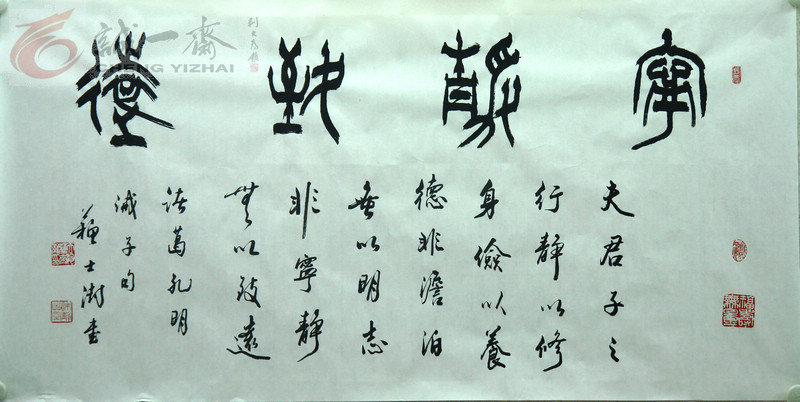 寧靜致遠
夫君子之
行靜以修
身儉以養
德非澹泊
無以明志
非寧靜
無以致遠
諸葛孔明
誡子句
蘇士澍書
誠一齋
CHENG YIZHAI